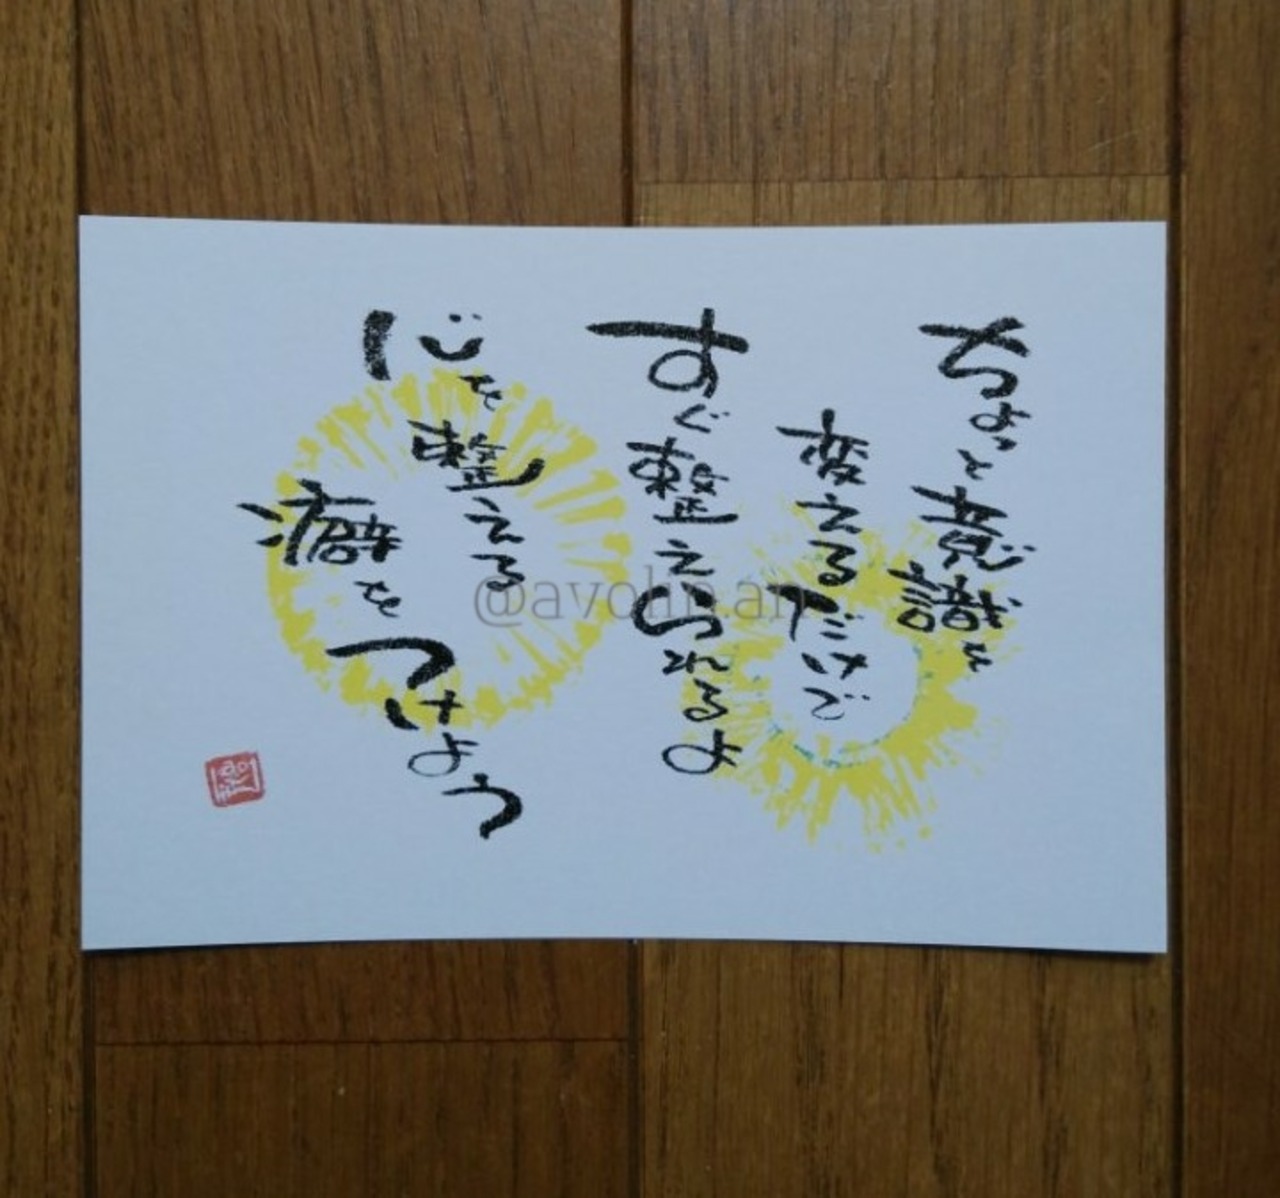 ちょっと意識を
変えるだけで
すぐ整えられるよ
心を整える
癖をつけよう